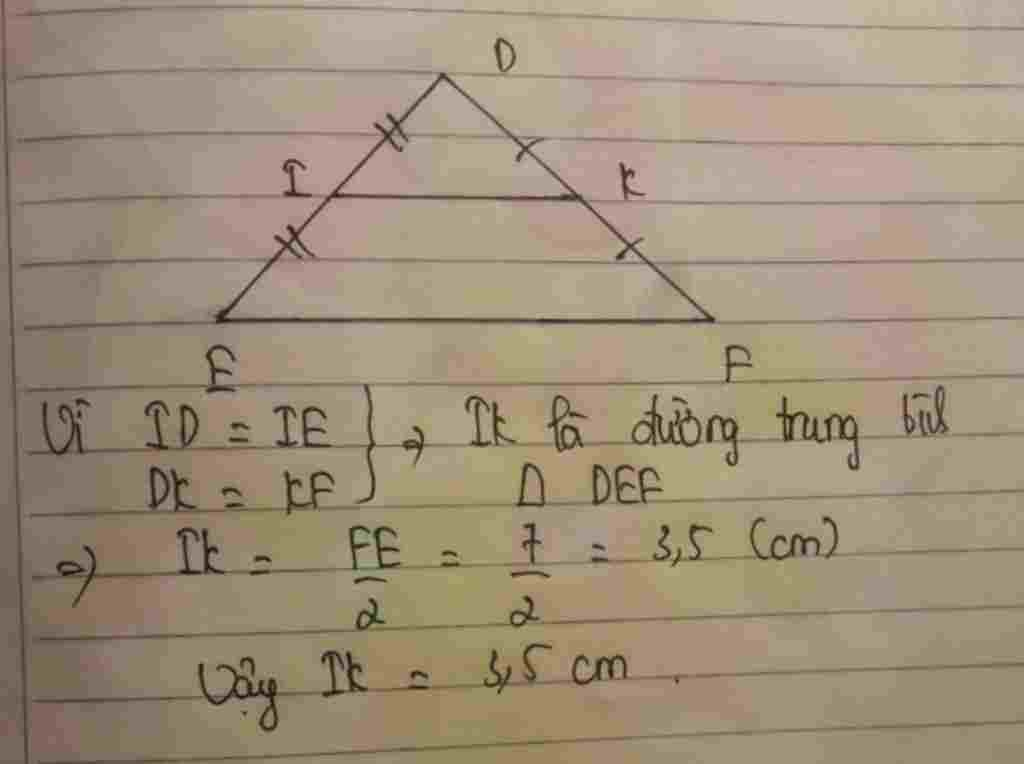 D
I K
E F
Vì ID = IE } => IK là đường trung bình
DK = KF Δ DEF
=> IK = FE/2 = 7/2 = 3,5 (cm)
Vậy IK = 3,5 cm.